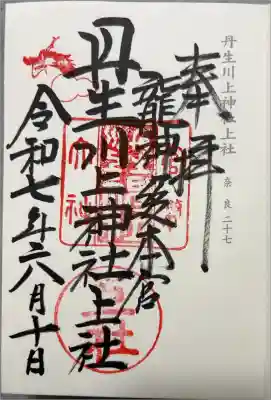 丹生川上神社上社 奈良二十七
奉拝
龍神総本宮
丹生川上神社上社
令和七年六月十日